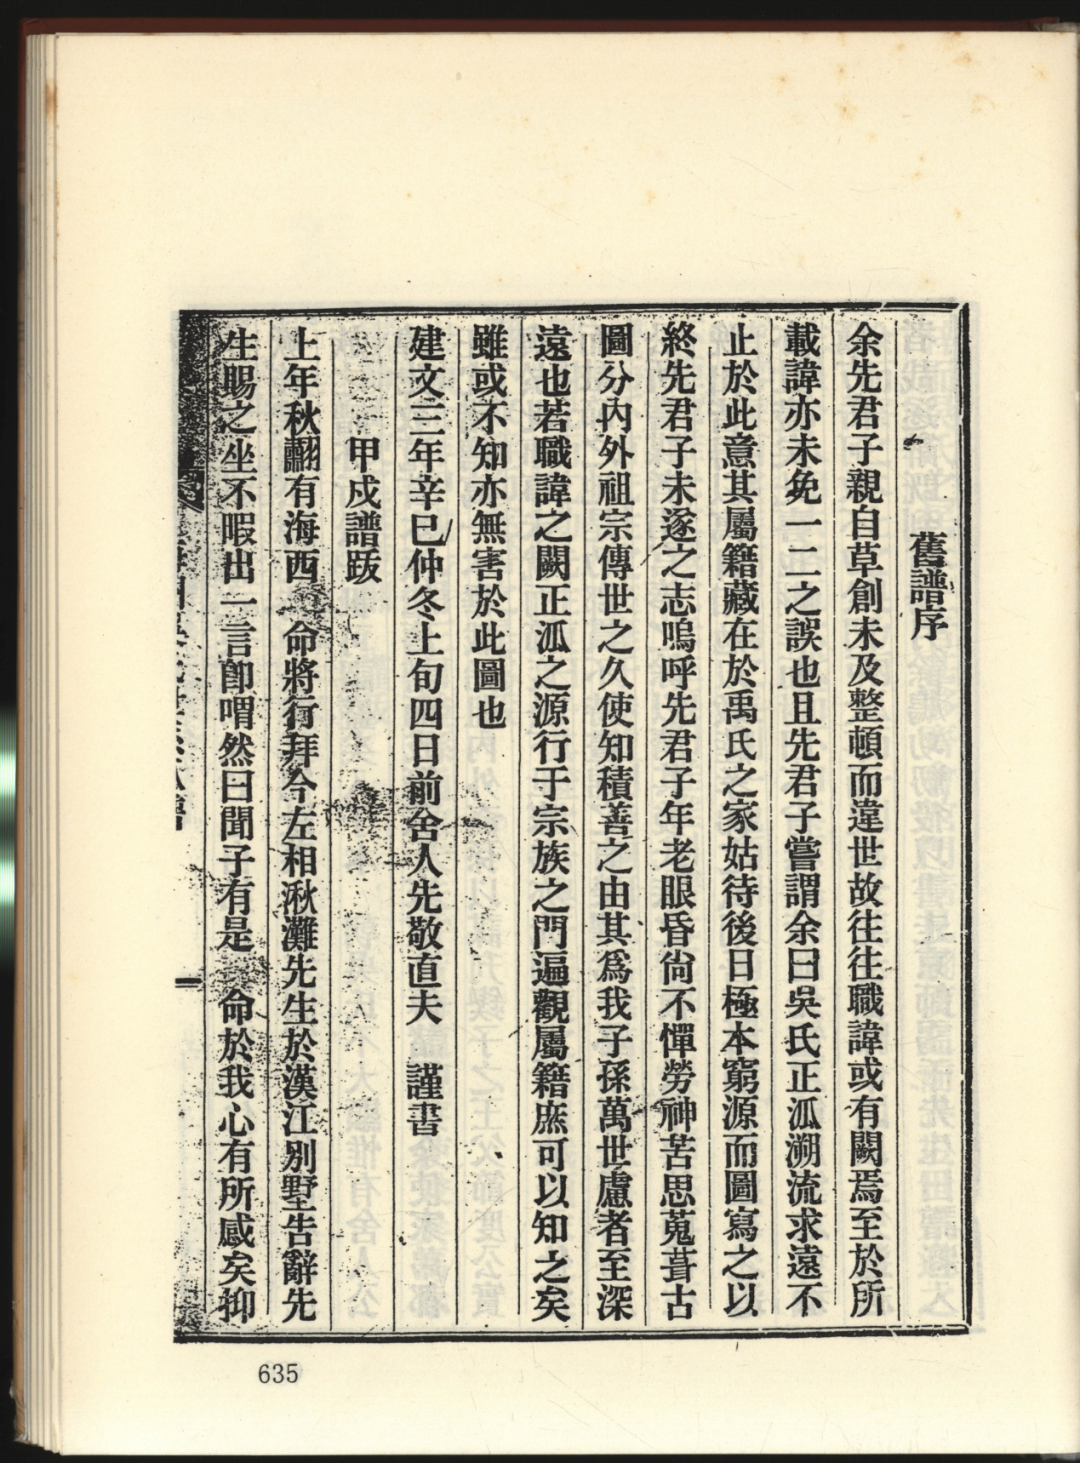 舊譜序
余先君子親自草創未及整頓而違世故往往職諱或有闕焉至於所
載諱亦未免一二之誤也且先君子嘗謂余曰吳氏正派溯流求遠不
止於此意其屬籍藏在於禹氏之家姑待後日極本窮源而圖寫之以
終先君子未遂之志嗚呼先君子年老眼昏尙不憚勞神苦思蒐葺古
圖分內外祖宗傳世之久使知積善之由其爲我子孫萬世慮者至深
遠也若職諱之闕正派之源行于宗族之門遍觀屬籍庶可以知之矣
雖或不知亦無害於此圖也
建文三年辛巳仲冬上旬四日前舍人先敬直夫 謹書
甲戍譜跋
上年秋翻有海西 命將行拜今左相湫灘先生於漢江別墅告辭先
生賜之坐不暇出一言卽喟然曰聞子有是 命於我心有所感矣抑
635